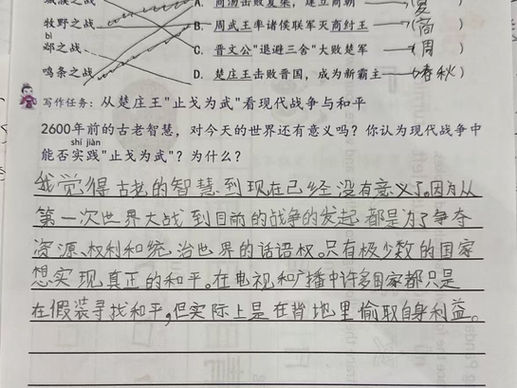 城濮之战 A. 商汤击败夏桀，建立商朝 (夏)
牧野之战 B. 周武王率诸侯联军灭商纣王 (商)
bì
邲之战 C. 晋文公"退避三舍"大败楚军 (周)
鸣条之战 D. 楚庄王击败晋国，成为新霸主 (春秋)
写作任务：从楚庄王"止戈为武"看现代战争与和平
2600年前的古老智慧，对今天的世界还有意义吗？你认为现代战争中
shí jiàn
能否实践"止戈为武"？为什么？
我觉得古老的智慧到现在已经没有意义了。因为从
第一次世界大战到目前的战争的发起都是为了争夺
资源、权利和统治世界的话语权。只有极少数的国家
想实现真正的和平。在电视和广播中许多国家都只是
在假装寻找和平，但实际上是在背地里偷取自身利益。